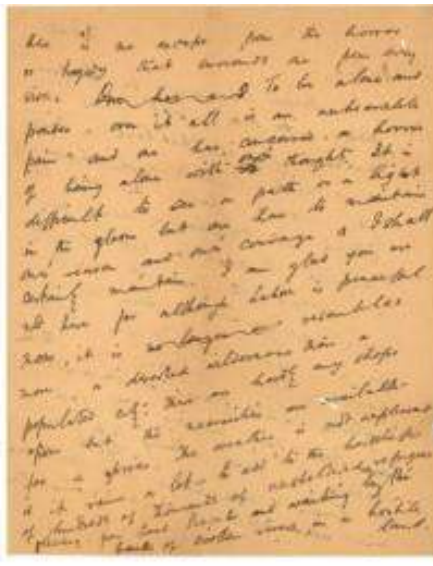 there is no escape from the horror
or tragedy that surrounds one from every
side. To be alone and
ponder over it all is an unbearable
pain and one has conceived a horror
of being alone with thought. It is
difficult to see a path or a light
in the gloom but one has to maintain
one's reason and one's courage & I shall
certainly maintain. I am glad you are
not here for although Lahore is peaceful
now, it is no longer resembles
more a deserted wilderness than a
populated city. There are hardly any shops
open but the necessities are available
for a price. The weather is not unpleasant
& it rains a lot to add to the hardships
of hundreds of thousands of unsheltered refugees
fleeing for their lives and reaching by the
banks of another river, in a hostile
land.